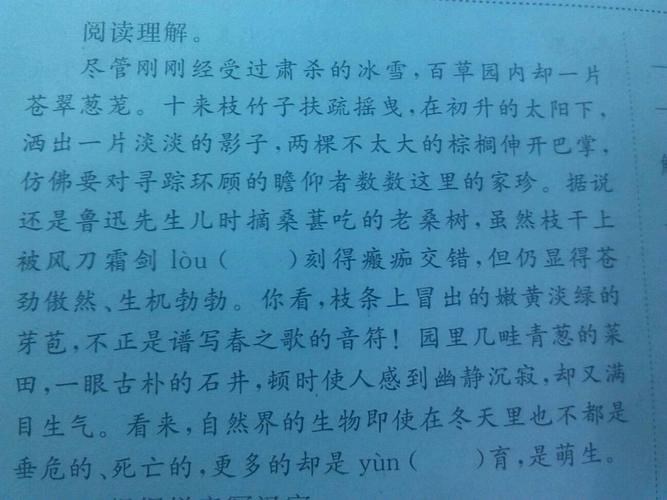 阅读理解。
尽管刚刚经受过肃杀的冰雪,百草园内却一片
苍翠葱茏。十来枝竹子扶疏摇曳,在初升的太阳下,
洒出一片淡淡的影子,两棵不太大的棕榈伸开巴掌,
仿佛要对寻踪环顾的瞻仰者数数这里的家珍。据说
还是鲁迅先生儿时摘桑葚吃的老桑树,虽然枝干上
被风刀霜剑 lòu(　　)刻得瘢痂交错,但仍显得苍
劲傲然、生机勃勃。你看,枝条上冒出的嫩黄淡绿的
芽苞,不正是谱写春之歌的音符!园里几畦青葱的菜
田,一眼古朴的石井,顿时使人感到幽静沉寂,却又满
目生气。看来,自然界的生物即使在冬天里也不都是
垂危的、死亡的,更多的却是 yùn(　　)育,是萌生。